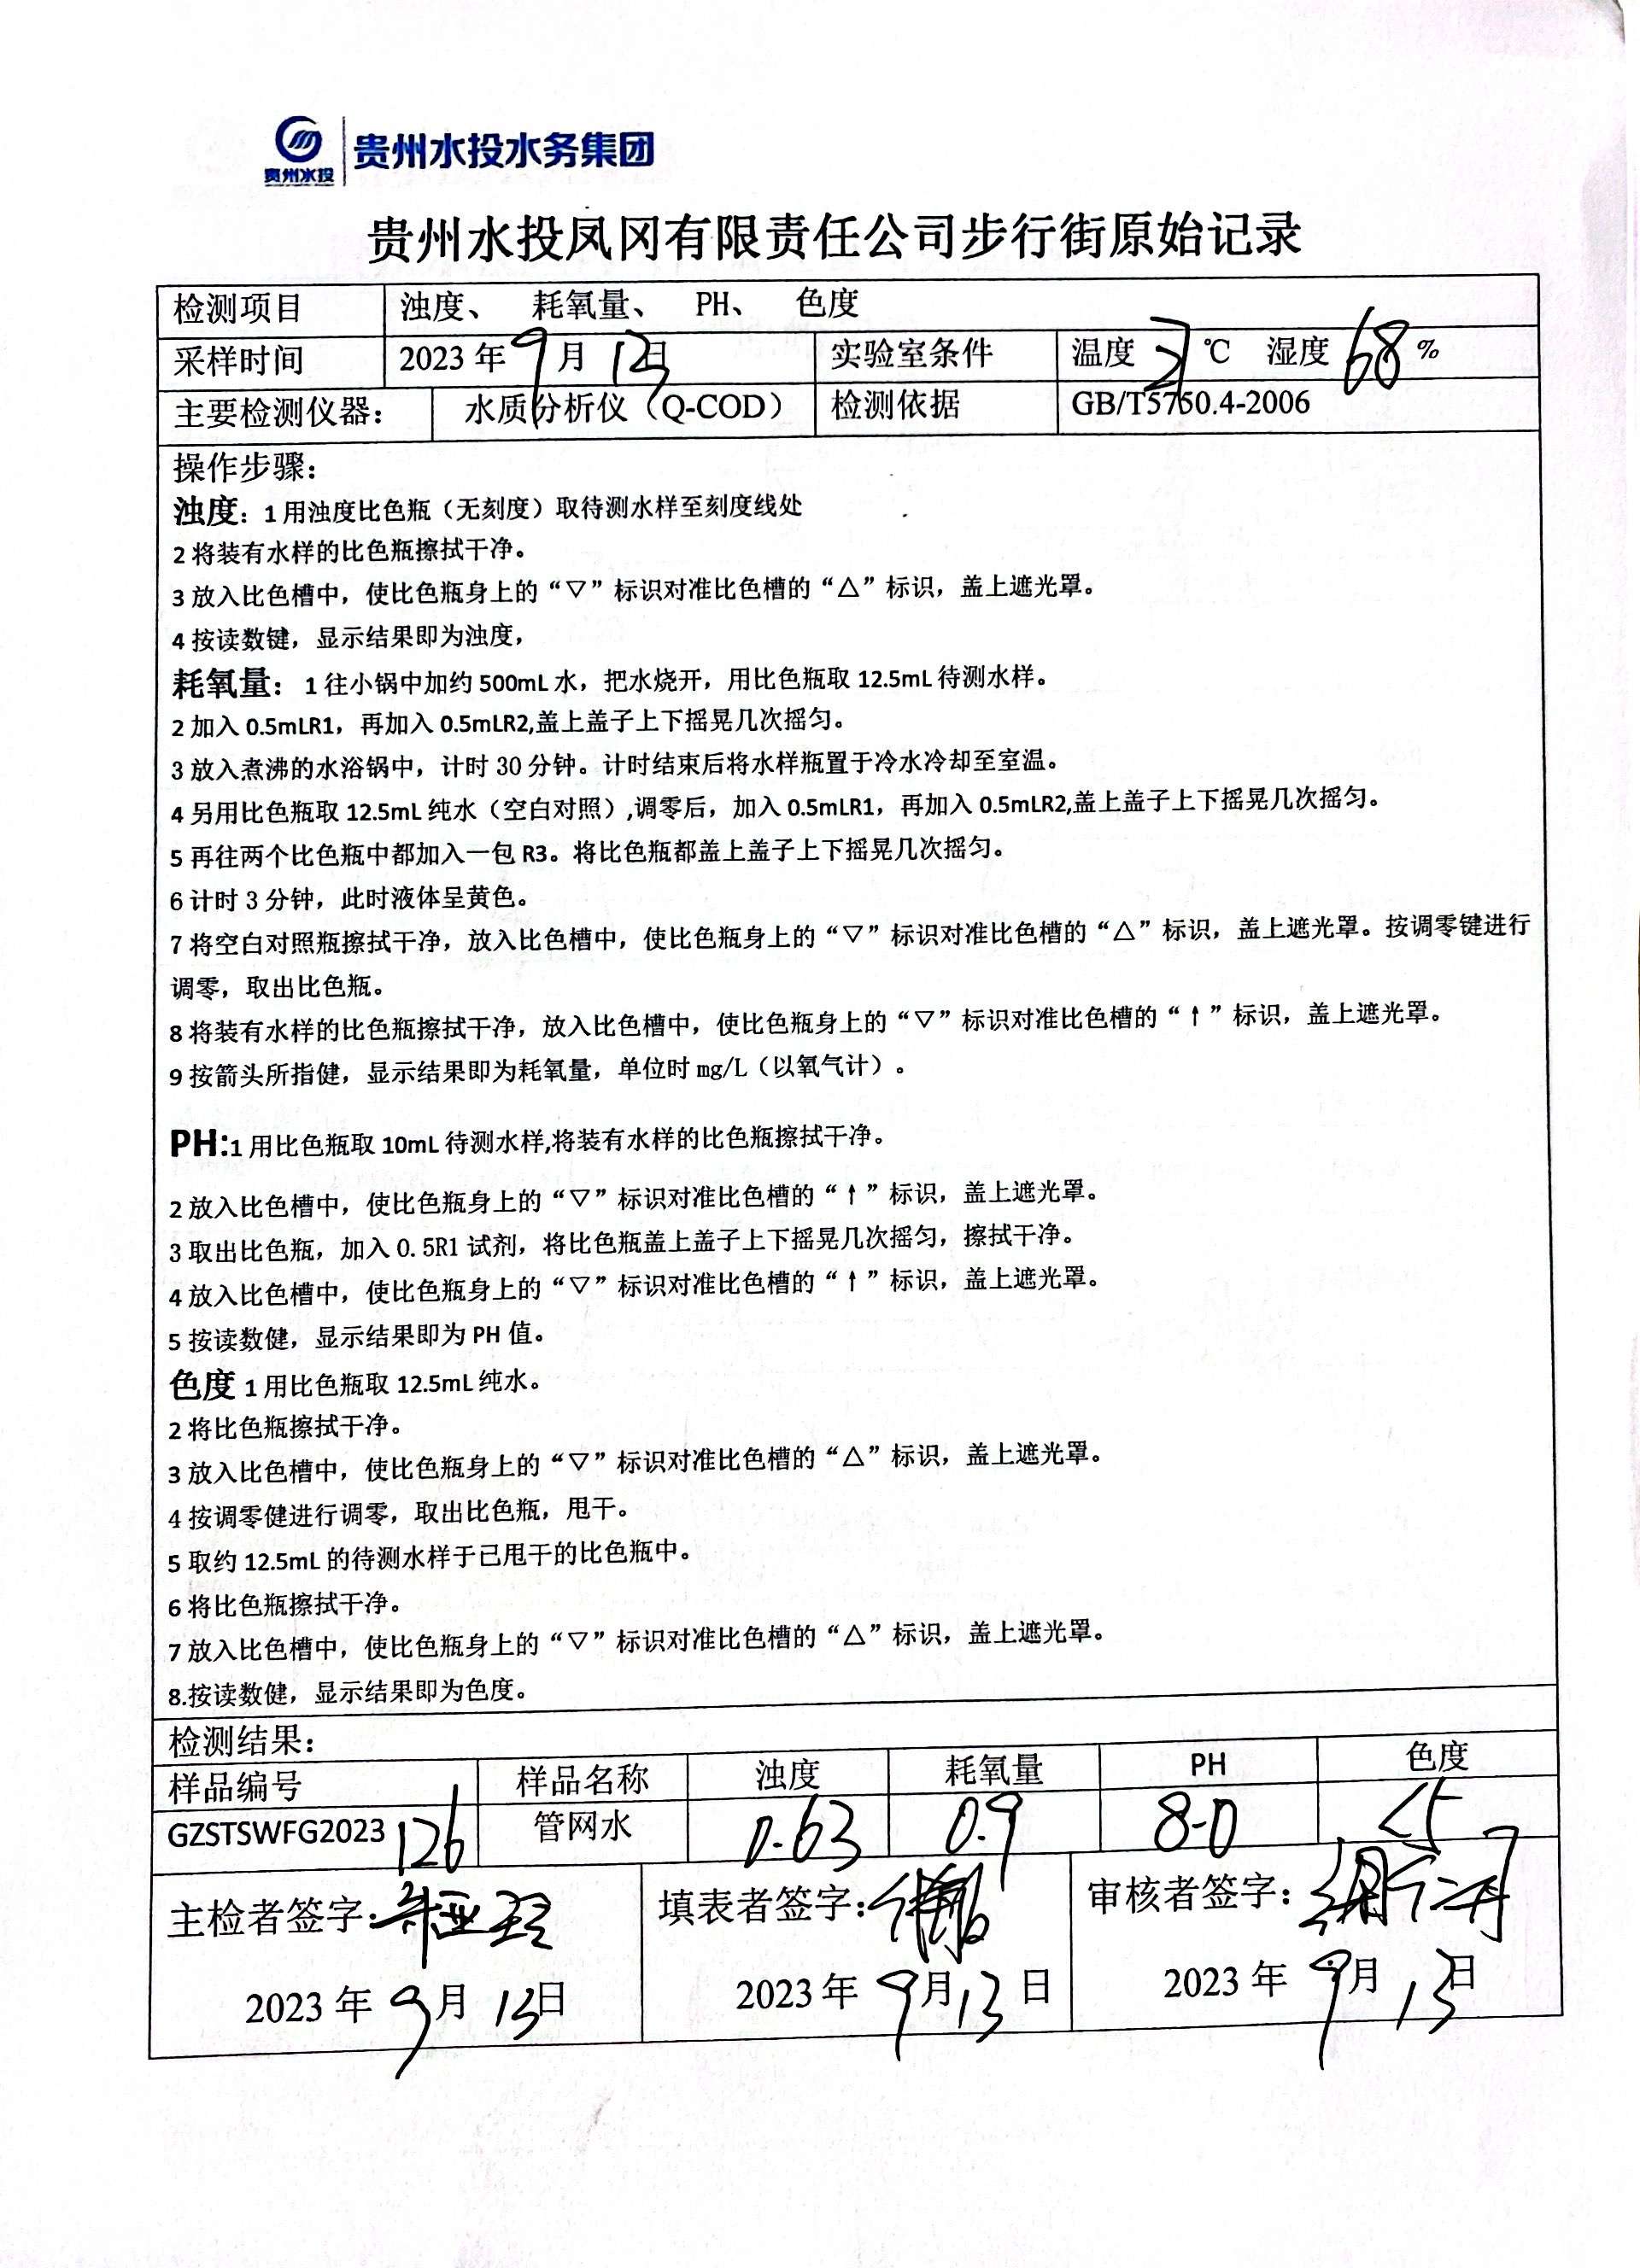 贵州水投
贵州水投水务集团
贵州水投凤冈有限责任公司步行街原始记录
检测项目 浊度、 耗氧量、 PH、 色度
采样时间 2023 年 9 月 13 日 实验室条件 温度 ℃ 湿度 68 %
主要检测仪器： 水质分析仪（Q-COD） 检测依据 GB/T5750.4-2006
操作步骤：
浊度：1 用浊度比色瓶（无刻度）取待测水样至刻度线处
2 将装有水样的比色瓶擦拭干净。
3 放入比色槽中，使比色瓶身上的“▽”标识对准比色槽的“△”标识，盖上遮光罩。
4 按读数键，显示结果即为浊度，
耗氧量： 1 往小锅中加约 500mL 水，把水烧开，用比色瓶取 12.5mL 待测水样。
2 加入 0.5mLR1，再加入 0.5mLR2,盖上盖子上下摇晃几次摇匀。
3 放入煮沸的水浴锅中，计时 30 分钟。计时结束后将水样瓶置于冷水冷却至室温。
4 另用比色瓶取 12.5mL 纯水（空白对照）,调零后，加入 0.5mLR1，再加入 0.5mLR2,盖上盖子上下摇晃几次摇匀。
5 再往两个比色瓶中都加入一包 R3。将比色瓶都盖上盖子上下摇晃几次摇匀。
6 计时 3 分钟，此时液体呈黄色。
7 将空白对照瓶擦拭干净，放入比色槽中，使比色瓶身上的“▽”标识对准比色槽的“△”标识，盖上遮光罩。按调零键进行
调零，取出比色瓶。
8 将装有水样的比色瓶擦拭干净，放入比色槽中，使比色瓶身上的“▽”标识对准比色槽的“↑”标识，盖上遮光罩。
9 按箭头所指健，显示结果即为耗氧量，单位时 mg/L（以氧气计）。
PH:1 用比色瓶取 10mL 待测水样,将装有水样的比色瓶擦拭干净。
2 放入比色槽中，使比色瓶身上的“▽”标识对准比色槽的“↑”标识，盖上遮光罩。
3 取出比色瓶，加入 0.5R1 试剂，将比色瓶盖上盖子上下摇晃几次摇匀，擦拭干净。
4 放入比色槽中，使比色瓶身上的“▽”标识对准比色槽的“↑”标识，盖上遮光罩。
5 按读数健，显示结果即为 PH 值。
色度 1 用比色瓶取 12.5mL 纯水。
2 将比色瓶擦拭干净。
3 放入比色槽中，使比色瓶身上的“▽”标识对准比色槽的“△”标识，盖上遮光罩。
4 按调零健进行调零，取出比色瓶，甩干。
5 取约 12.5mL 的待测水样于已甩干的比色瓶中。
6 将比色瓶擦拭干净。
7 放入比色槽中，使比色瓶身上的“▽”标识对准比色槽的“△”标识，盖上遮光罩。
8.按读数健，显示结果即为色度。
检测结果：
样品编号 样品名称 浊度 耗氧量 PH 色度
GZSTSWFG2023 126 管网水 0.63 0.9 8.0 <5
主检者签字: 填表者签字: 审核者签字:
2023 年 9 月 13 日 2023 年 9 月 13 日 2023 年 9 月 13 日